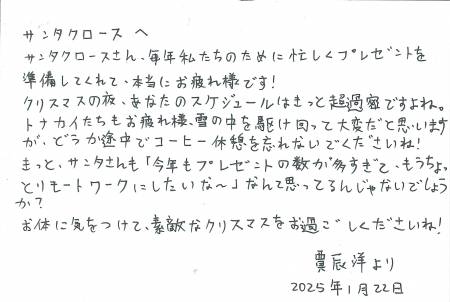 サンタクロース へ
サンタクロースさん、毎年私たちのために忙しくプレゼントを
準備してくれて、本当にお疲れ様です!
クリスマスの夜、あなたのスケジュールはきっと超過密ですよね。
トナカイたちもお疲れ様、雪の中を駆け回って大変だと思います
が、どうか途中でコーヒー休憩を忘れないでくださいね!
きっと、サンタさんも「今年もプレゼントの数が多すぎて、もうちょっ
とリモートワークにしたいな〜」なんて思ってるんじゃないでしょう
か?
お体に気をつけて、素敵なクリスマスをお過ごしくださいね!
賈辰洋より
2025年1月22日